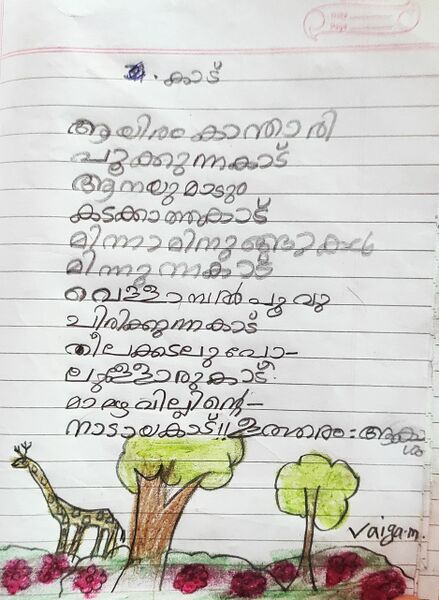 കാട്
ആയിരം കാന്താരി
പൂക്കുന്നകാട്
ആനയുമാടും
കടക്കാത്തകാട്
മിന്നാമിന്നുങ്ങുകൾ
മിന്നുന്നകാട്
വെള്ളാമ്പൽ പൂവു
ചിരിക്കുന്നകാട്
നീലക്കടലു പോ-
ലുള്ളൊരുകാട്.
മാമഴവില്ലിന്റെ-
നാടായകാട്!! ഉത്തരം: ആകാ
ശം
Vaiga.m.